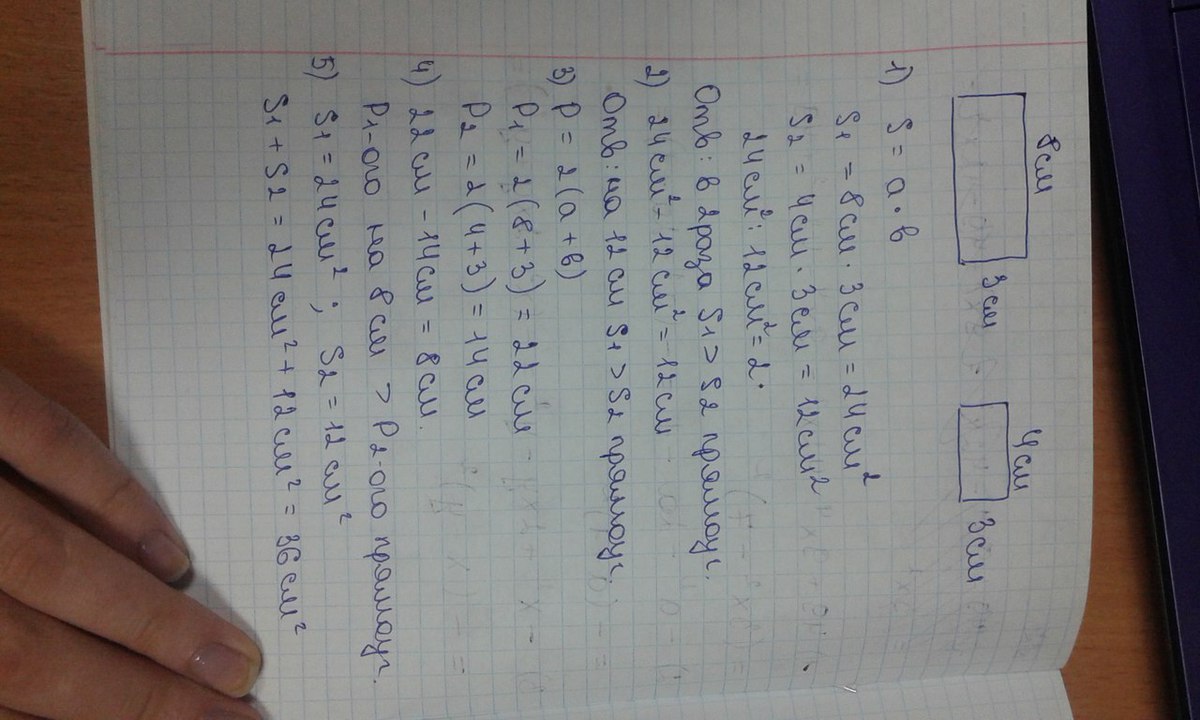 8см 4см
3см 3см
1) S = a · в
S1 = 8см · 3см = 24см²
S2 = 4см · 3см = 12см²
24см² : 12см² = 2.
Отв: в 2раза S1 > S2 прямоуг.
2) 24см² - 12см² = 12см
Отв: на 12см S1 > S2 прямоуг.
3) P = 2(a + в)
P1 = 2(8 + 3) = 22см
P2 = 2(4+3) = 14см
4) 22см - 14см = 8см.
P1-ого на 8см > P2-ого прямоуг.
5) S1 = 24см² ; S2 = 12см²
S1 + S2 = 24см² + 12см² = 36см²